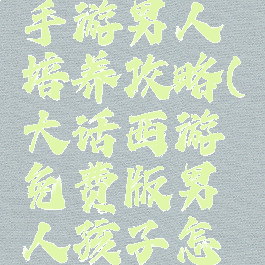 手游男人
培养攻略(
大话西游
免费版男
人孩子怎